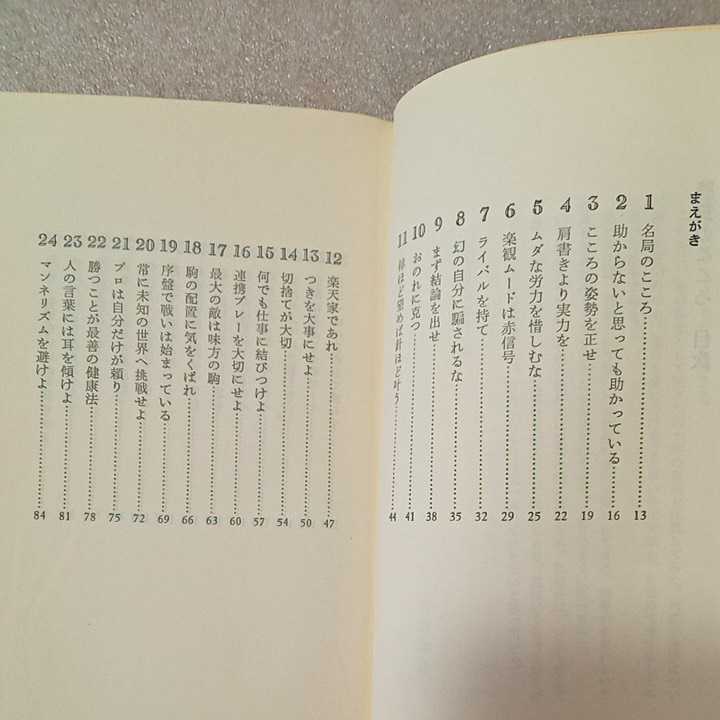 まえがき
1 名局のこころ……13
2 助からないと思っても助かっている……16
3 こころの姿勢を正せ……19
4 肩書きより実力を……22
5 ムダな労力を惜しむな……25
6 楽観ムードは赤信号……29
7 ライバルを持て……32
8 幻の自分に騙されるな……35
9 まず結論を出せ……38
10 おのれに克つ……41
11 棒ほど望めば針ほど叶う……44
12 楽天家であれ……47
13 つきを大事にせよ……50
14 切捨てが大切……54
15 何でも仕事に結びつけよ……57
16 連携プレーを大切にせよ……60
17 最大の敵は味方の駒……63
18 駒の配置に気をくばれ……66
19 序盤で戦いは始まっている……69
20 常に未知の世界へ挑戦せよ……72
21 プロは自分だけが頼り……75
22 勝つことが最善の健康法……78
23 人の言葉には耳を傾けよ……81
24 マンネリズムを避けよ……84